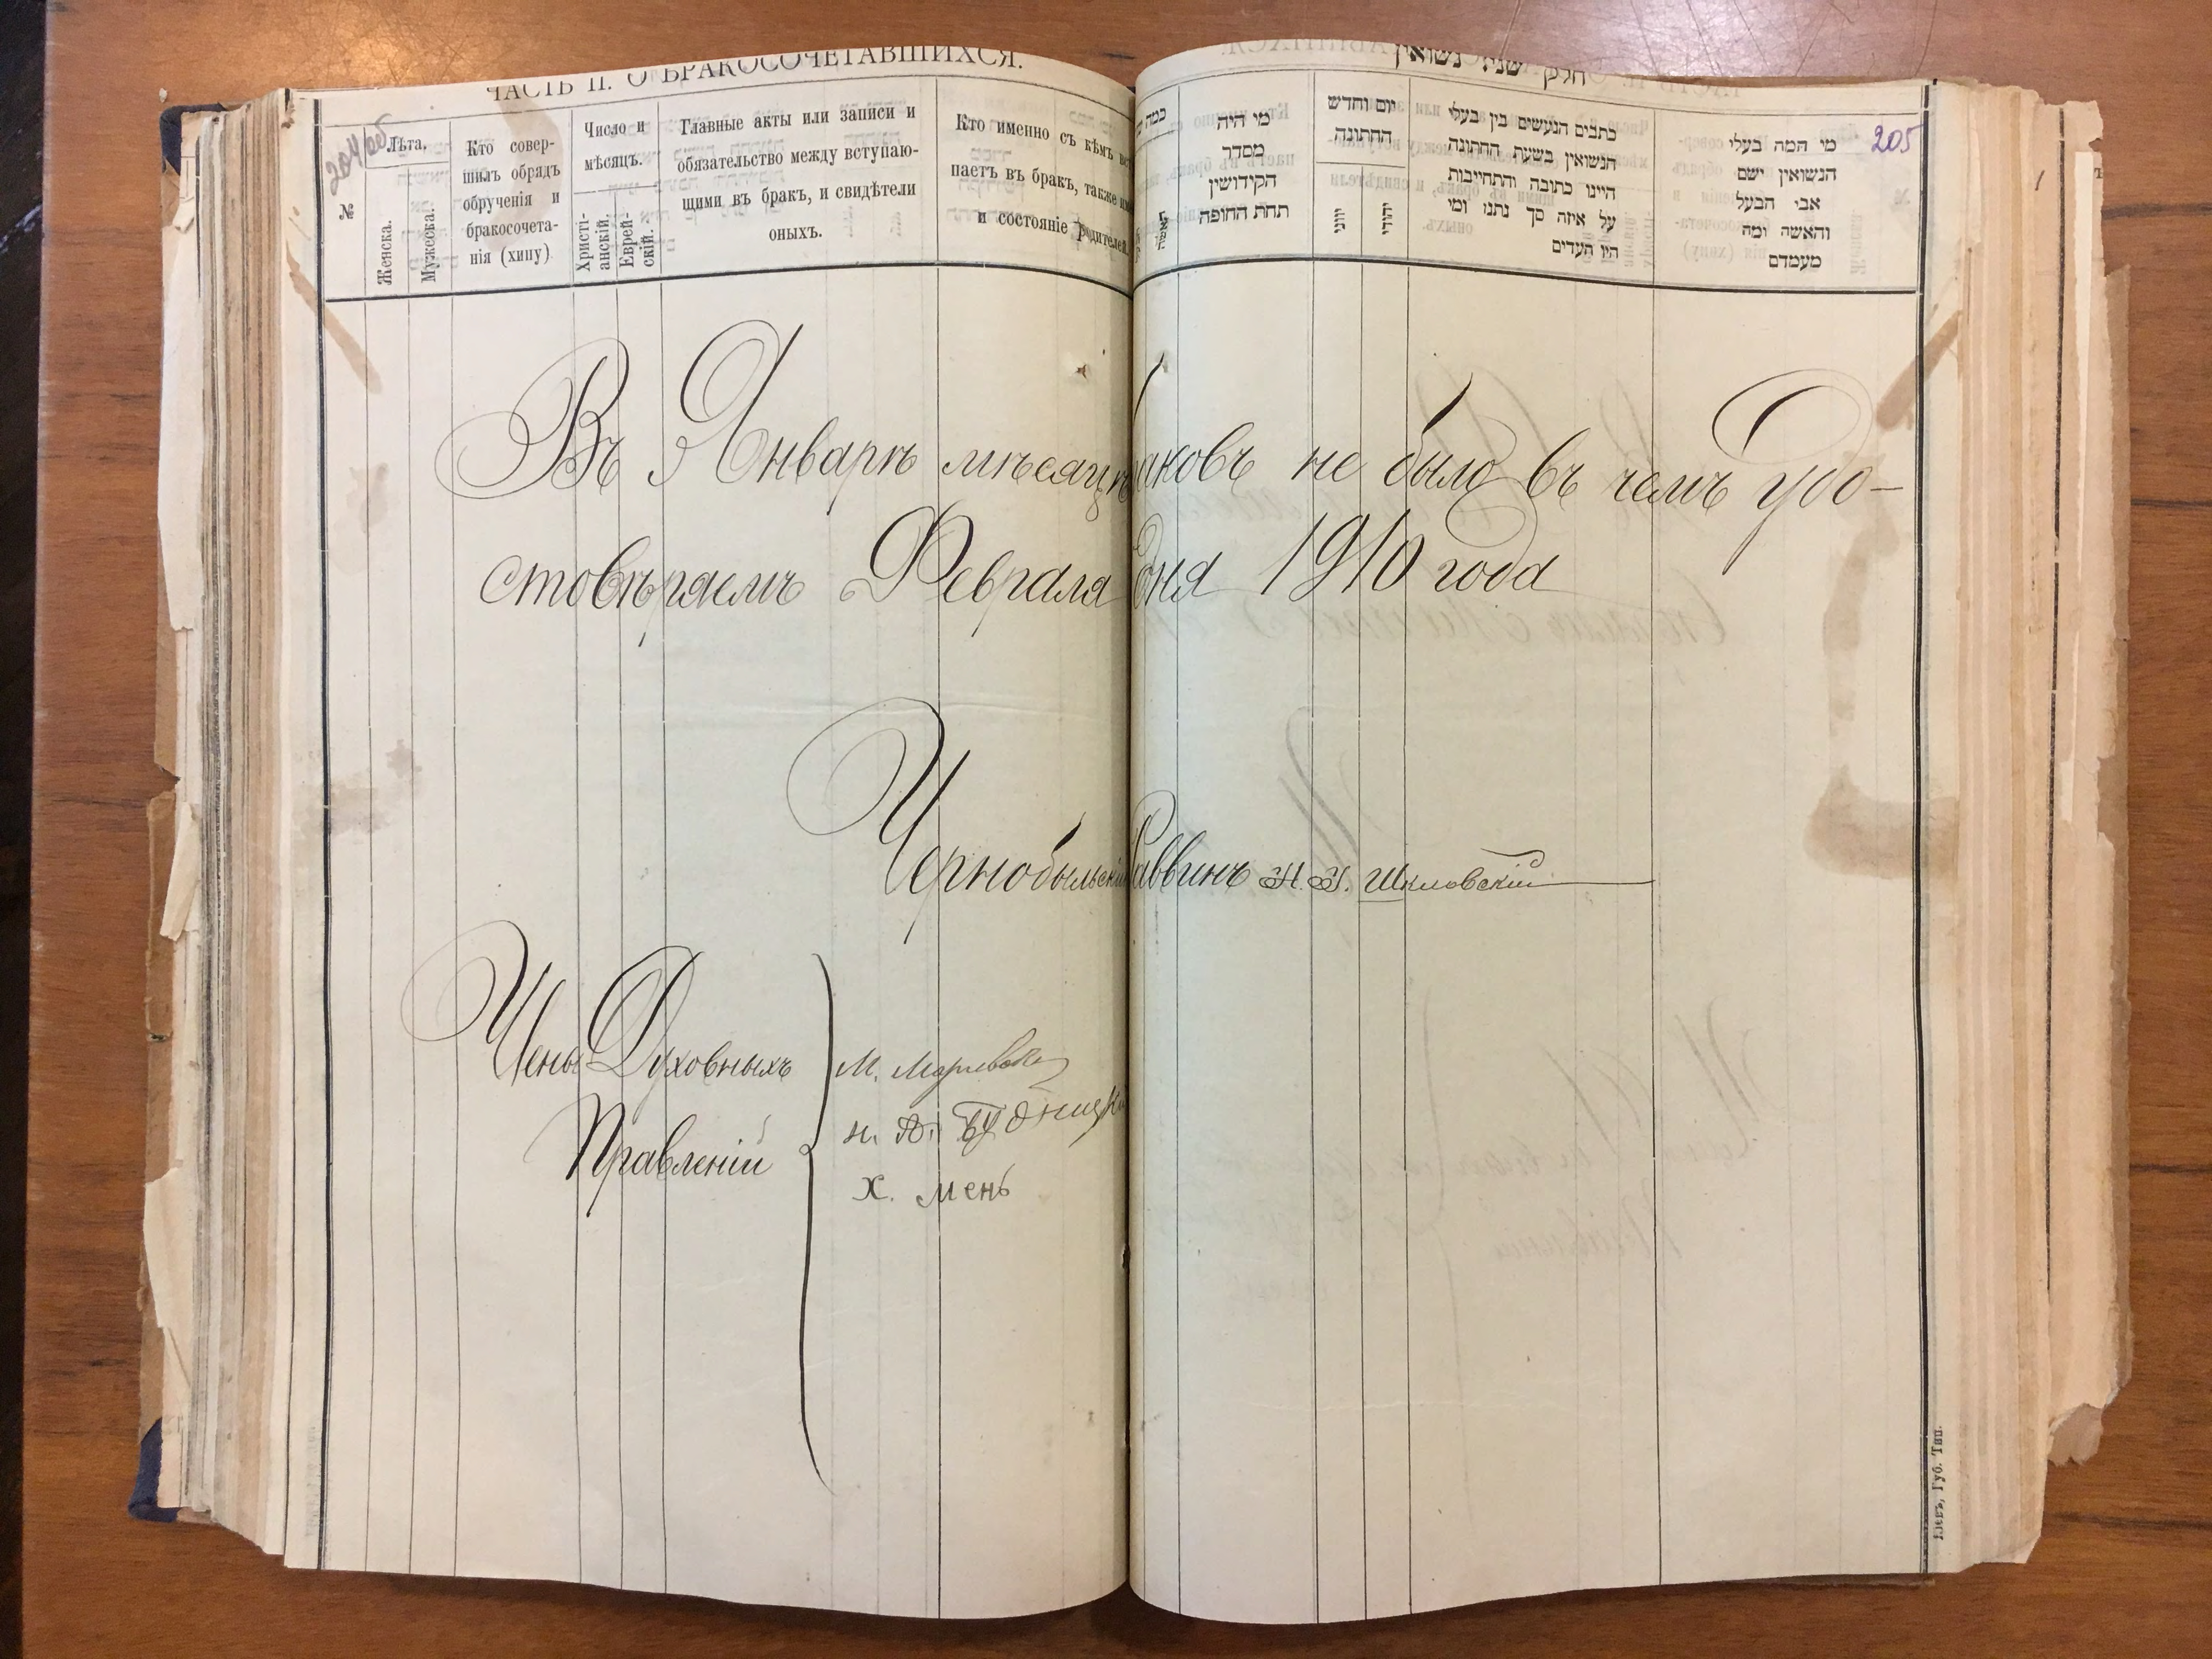 ЧАСТЬ II. О БРАКОСОЧЕТАВШИХСЯ.
חלק שני נשואין
204 об
205
№
Лѣта.
Женска.
Мужеска.
Кто совер-
шилъ обрядъ
обрученія и
бракосочета-
нія (хипу)
Число и
мѣсяцъ.
Христі-
анскій.
Еврей-
скій.
Главные акты или записи и
обязательство между вступаю-
щими въ бракъ, и свидѣтели
оныхъ.
Кто именно съ кѣмъ
паетъ въ бракъ, также
и состояніе родителей.
כמה
האשה
מי היה
מסדר
הקידושין
תחת החופה
יום וחדש
החתונה
יווני
יהודי
כתבים הנעשים בין בעלי
הנשואין בשעת החתונה
היינו כתובה והתחייבות
על איזה סך נתנו ומי
היו העדים
מי המה בעלי
הנשואין ישם
אבי הבעל
והאשה ומה
מעמדם
Въ Январѣ мѣсяцѣ браковъ не было въ чемъ удо-
стовѣряемъ Февраля дня 1910 года
Чернобыльскій Раввинъ Шкловскій
Члены Духовныхъ
Правленій
М.
Н. Будницкій
Х. Мень
Кіевъ, Губ. Тип.